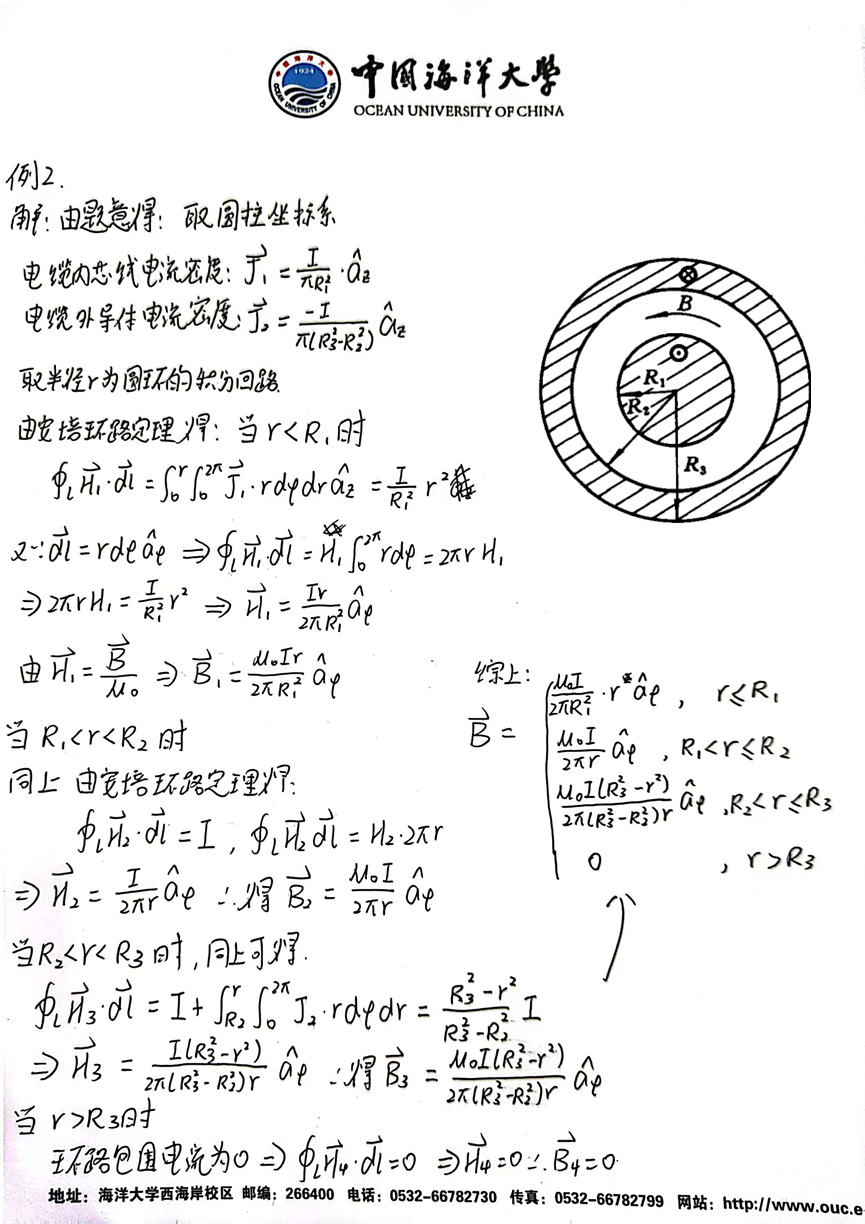 中国海洋大学
1924
OCEAN UNIVERSITY OF CHINA
例2.
解: 由题意得: 取圆柱坐标系
电缆内芯线电流密度: J⃗₁ = I/(πR₁²)·â_z
电缆外导体电流密度: J⃗₂ = -I/(π(R₃²-R₂²)) â_z
取半径r为圆环的积分回路.
由安培环路定理得: 当 r<R₁时
∮_l H⃗₁·dl⃗ = ∫₀^r∫₀^2π J⃗₁·rdφdr â_z = I/R₁² r²
又∵dl⃗ = rdφ â_φ ⇒ ∮_l H⃗₁·dl⃗ = H₁∫₀^2π rdφ = 2πrH₁
⇒ 2πrH₁ = I/R₁² r² ⇒ H⃗₁ = Ir/(2πR₁²) â_φ
由 H⃗₁ = B⃗/μ₀ ⇒ B⃗₁ = μ₀Ir/(2πR₁²) â_φ
当 R₁<r<R₂ 时
同上 由安培环路定理得:
∮_l H⃗₂·dl⃗ = I , ∮_l H⃗₂ dl⃗ = H₂·2πr
⇒ H⃗₂ = I/(2πr) â_φ ∴得 B⃗₂ = μ₀I/(2πr) â_φ
当R₂<r<R₃时, 同上可得.
∮_l H⃗₃·dl⃗ = I + ∫_R₂^r∫₀^2π J₂·rdφdr = (R₃²-r²)/(R₃²-R₂²) I
⇒ H⃗₃ = I(R₃²-r²)/(2π(R₃²-R₂²)r) â_φ ∴得 B⃗₃ = μ₀I(R₃²-r²)/(2π(R₃²-R₂²)r) â_φ
当 r>R₃时
环路包围电流为0 ⇒ ∮_l H⃗₄·dl⃗=0 ⇒ H⃗₄=0 ∴ B⃗₄=0
B
R₁
R₂
R₃
综上:
B⃗ =
μ₀I/(2πR₁²)·r â_φ , r≤R₁
μ₀I/(2πr) â_φ , R₁<r≤R₂
μ₀I(R₃²-r²)/(2π(R₃²-R₂²)r) â_φ , R₂<r≤R₃
0 , r>R₃
地址: 海洋大学西海岸校区 邮编: 266400 电话: 0532-66782730 传真: 0532-66782799 网站: http://www.ouc.e